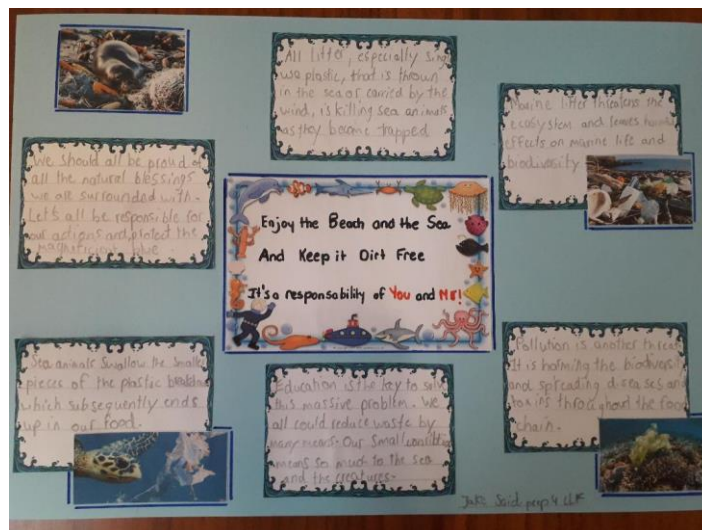 All litter, especially sing
use plastic, that is thrown
in the sea or carried by the
wind, is killing sea animals
as they become trapped
Marine litter threatens the
ecosystem and leaves
effects on marine life and
biodiversity
We should all be proud of
all the natural blessings
we are surrounded with.
Let's all be responsible for
our actions and protect the
magnificient blue.
Enjoy the Beach and the Sea
And Keep it Dirt Free
It's a responsability of You and Me!
Sea animals swallow the smaller
pieces of the plastic
which subsequently ends
up in our food.
Education is the key to solve
this massive problem. We
all could reduce waste by
many means. Our small
means so much to the sea
and the creatures.
Pollution is another threat
It is harming the biodiversity
and spreading diseases and
toxins throughout the food
chain.
Said